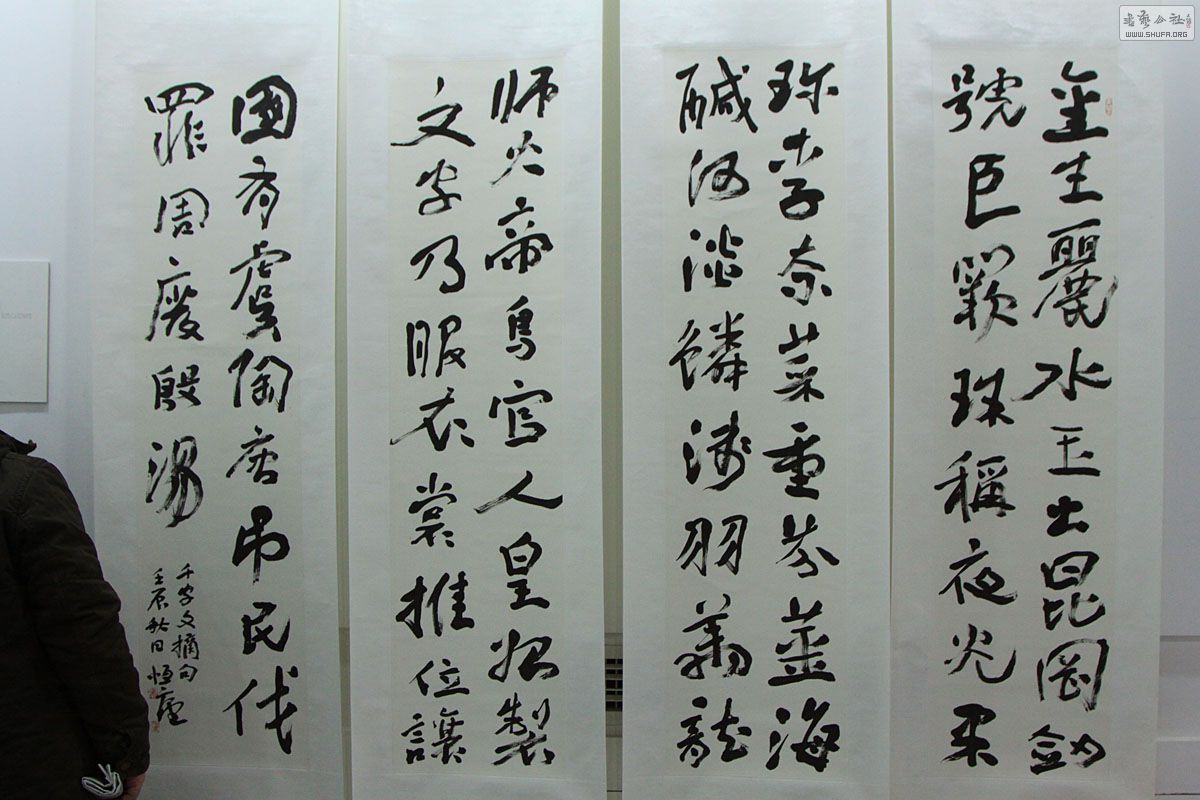 金生麗水玉出昆岡劍
號巨闕珠稱夜光果
珍李奈菜重芥薑海
鹹河淡鱗潛羽翔龍
師火帝鳥官人皇始製
文字乃服衣裳推位讓
國有虞陶唐吊民伐
罪周廢殷湯
千字文摘句
壬辰秋日恒廬
書藝公社
WWW.SHUFA.ORG